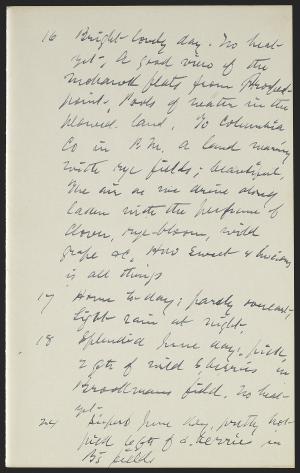 16 Bright lovely day. No heat
yet. A good view of the
Mohawk flats from
point. Pools of water in the
plowed land. To Columbia
Co in P.M. a land waving
with rye fields; beautiful,
The air as we drive along
laden with the perfume of
clover, rye-bloom, wild
grape &c. How sweet &
is all things
17 Home to-day; partly overcast,
light rain at night.
18 Splendid June day; pick
2 qts of wild s. berries in
Brookmans field. No heat
yet.
24 Superb June day, pretty hot
pick 6 qts of s. berries in
B's fields